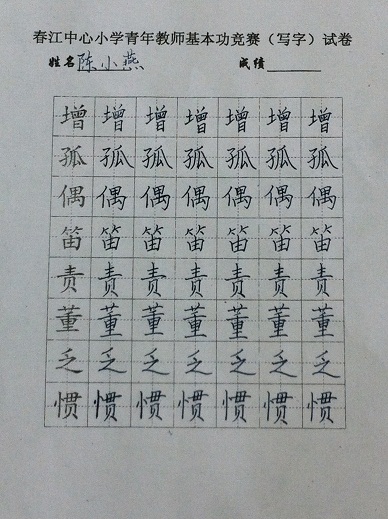 春江中心小学青年教师基本功竞赛（写字）试卷
姓名陈小燕 成绩
增增增增增增增
孤孤孤孤孤孤孤
偶偶偶偶偶偶偶
笛笛笛笛笛笛笛
责责责责责责责
董董董董董董董
乏乏乏乏乏乏乏
惯惯惯惯惯惯惯